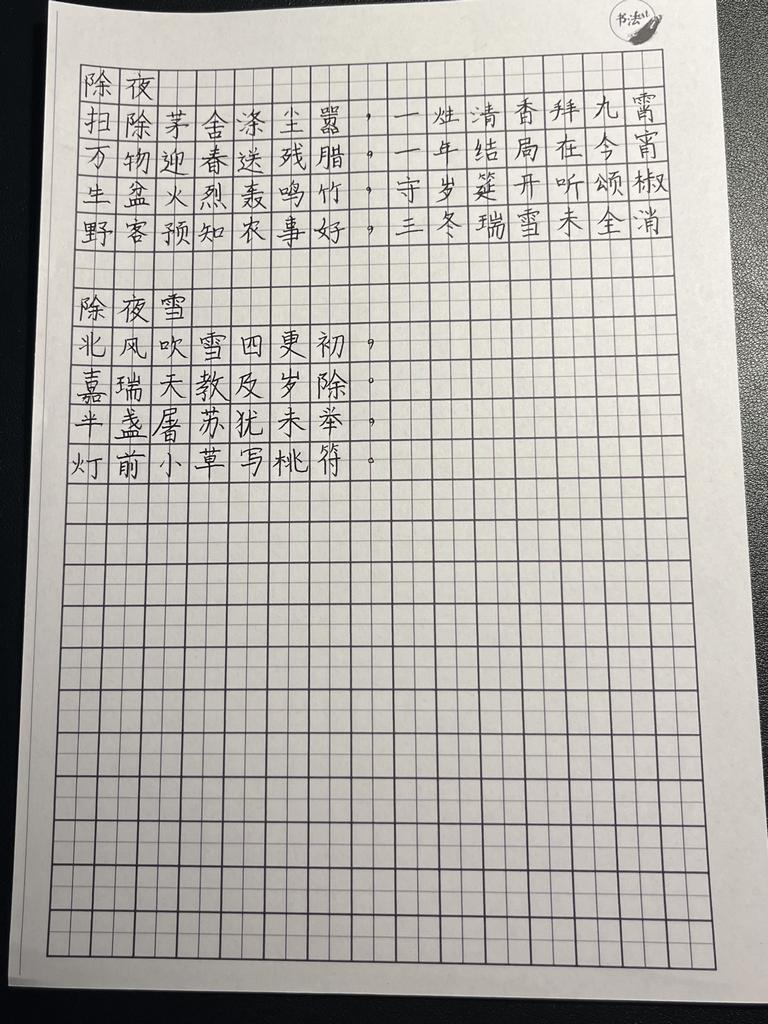 书法
除夜
扫除茅舍涤尘嚣，一炷清香拜九霄
万物迎春送残腊，一年结局在今宵
生盆火烈轰鸣竹，守岁筵开听颂椒
野客预知农事好，三冬瑞雪未全消
除夜雪
北风吹雪四更初，
嘉瑞天教及岁除。
半盏屠苏犹未举，
灯前小草写桃符。